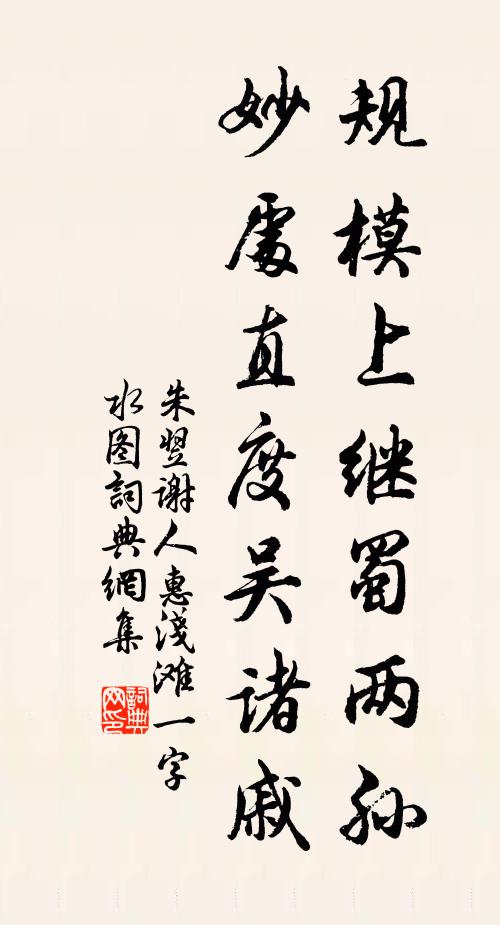 规模上继蜀两孙
妙處直度吴诸戚
朱翌谢人惠浅滩一字
水图詞典網集
詞典网印